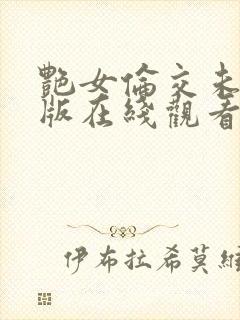 艷女倫交未
版在綫觀看
伊布拉希莫維